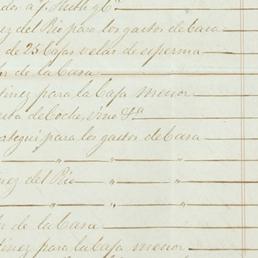 dos a J. Smith y Co
ez del Rio para los gastos de Casa
de 25 Cajas velas de esperma
de la Casa
inez para la Caja menor
de Coche, Vino &a
ategui para los gastos de Casa
" " "
nez del Rio " "
de la Casa
tinez para la Caja menor